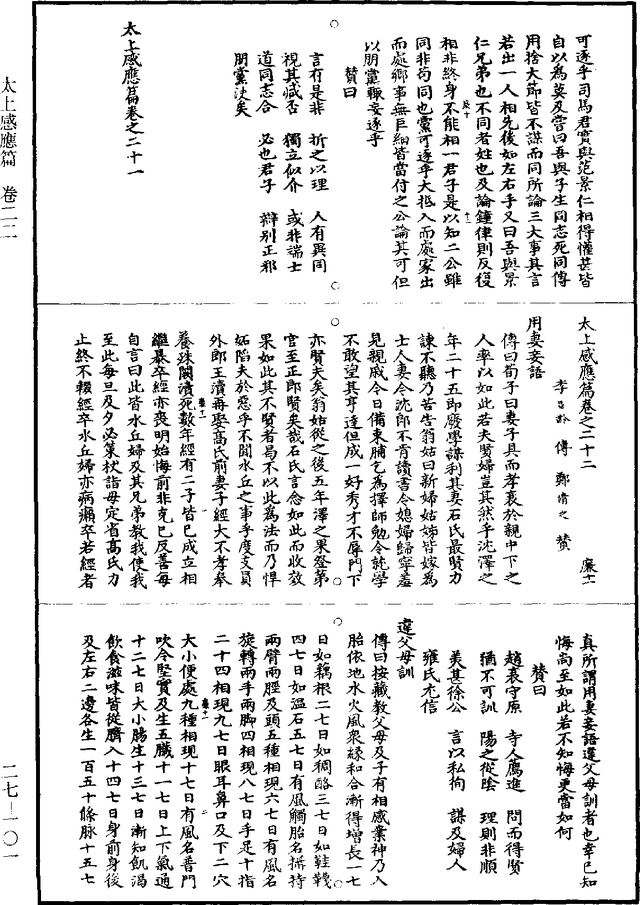 太上感應篇　卷二二
二七—一〇一
可逐乎司馬君實與范景仁相得懽甚皆
自以為莫及嘗曰吾與子生同志死同傳
用捨大節皆不謀而同所論三大事其言
若出一人相先後如左右手又曰吾與景
仁兄弟也不同者姓也及論鐘律則反復
相非終身不能相一君子是以知二公雖
同非苟同也黨可逐乎大抵入而處家出
而處鄉事無巨細皆當付之公論其可但
以朋黨輒妄逐乎
贊曰
言有是非　折之以理　人有異同
視其臧否　獨立似介　或非端士
道同志合　必也君子　辯別正邪
朋黨決矣
太上感應篇卷之二十一
太上感應篇卷之二十二　廉十一
李昌齡　傳　鄭清之　贊
用妻妾語
傳曰荀子曰妻子具而孝衰於親中下之
人率以如此若夫賢婦豈其然乎沈澤之
年二十五即廢學謀利其妻石氏最賢力
諫不聽乃苦告翁姑曰新婦姑姊皆嫁為
士人妻今沈郎不肯讀書令媳婦歸寧羞
見親戚今日備束脯乞為擇師勉令就學
不敢望其亨達但成一好秀才不辱門下
亦賢夫矣翁姑從之後五年澤之果登第
官至正郎賢矣哉石氏言念如此而收效
果如此其不賢者曷不以此為法而乃悍
妬陷夫於惡乎不聞水丘之事乎度支員
外郎王瀆再娶高氏前妻子經大不孝奉
養殊闕瀆死數年經有二子皆已成立相
繼暴卒經亦喪明始悔前非克已反善每
自言曰此皆水丘婦及其兄弟教我使我
至此每旦及夕必策杖詣母定省高氏力
止終不輟經卒水丘婦亦病癩卒若經者
真所謂用妻妾語違父母訓者也幸已知
悔尚至如此若不知悔更當如何
贊曰
趙衰守原　寺人薦進　問而得賢
猶不可訓　陽之從陰　理則非順
美甚徐公　言以私徇　謀及婦人
雍氏尤信
違父母訓
傳曰按藏教父母及子有相感業神乃入
胎依地水火風衆緣和合漸得增長一七
日如藕根二七日如稠酪三七日如鞋韈
四七日如溫石五七日有風觸胎名攝持
兩臂兩脛及頭五種相現六七日有風名
旋轉兩手兩脚四相現八七日手足十指
二十四相現九七日眼耳鼻口及下二穴
大小便處九種相現十七日有風名普門
吹令堅實及生五臟十一七日上下氣通
十二七日大小腸生十三七日漸知飢渴
飲食滋味皆從臍入十四七日身前身後
及左右二邊各生一百五十條脉十五七